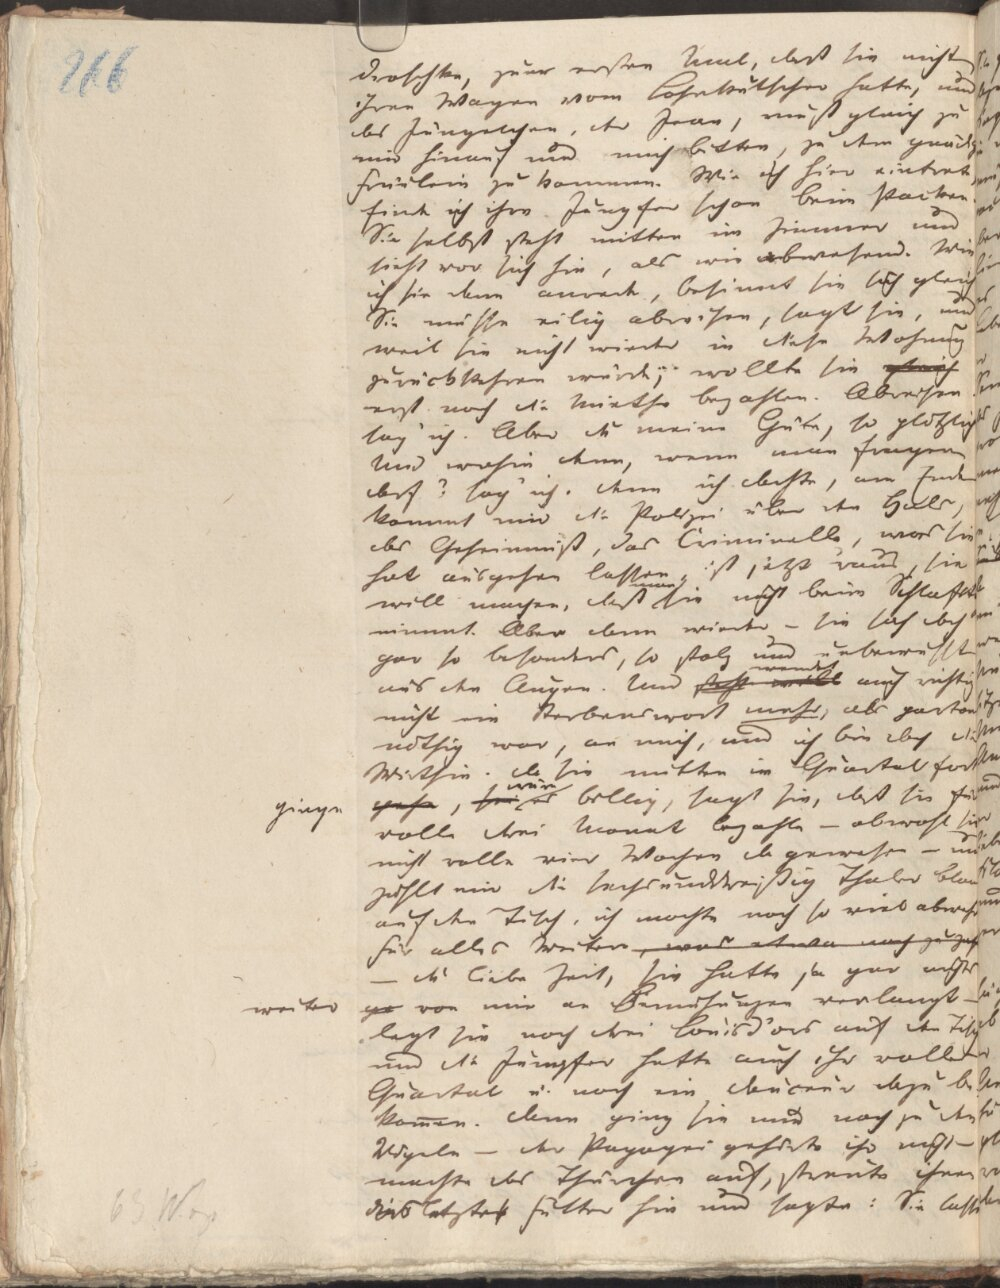 266
Droschke, zum ersten Mal, daß sie nicht
ihren Wagen vom Lohnkutscher hatte, und
das Jüngelchen, der Jean, muß gleich zu
mir hinauf und mich bitten, zu dem gnäd
Fräulein zu kommen. Wie ich hier eintrete
find ich ihre Jungfer schon beim Packen.
Sie selbst steht mitten im Zimmer und
sieht vor sich hin, als wie abwesend. Wie
ich sie dann anrede, besinnt sie sich gleich
Sie müsse eilig abreisen, sagt sie, und
weil sie nicht wieder in diese Wohnung
zurückkehren würde, wollte sie gleich
erst noch die Miethe bezahlen. Abreisen
sag' ich. Aber du meine Güte, so plötzlich
Und wohin denn, wenn man fragen
darf? sag' ich. Denn ich dachte, am Ende
kommt mir die Polizei über den Hals,
das Geheimniß, das Criminelle, was sie
hat ausgehen lassen, ist jetzt raus, sie
will machen, daß man sie nicht beim Schlafit
nimmt. Aber dann wieder – sie sah doch
gar so besonders, so stolz und unbewußt
aus den Augen. Und wendet auch richtig
nicht ein Sterbenswort mehr, als partou
nöthig war, an mich, und ich bin doch die
Wirthin. Da sie mitten im Quartal fort
ginge
gehe, sei wär es billig, sagt sie, daß sie für
volle drei Monat bezahle – obwohl sie
nicht volle vier Wochen da gewesen – und
zählt mir die sechsunddreißig Thaler blan
auf den Tisch, ich mochte noch so viel abweh
Für alles Weitere, was etwa noch zu zah
– du liebe Zeit, sie hatte ja gar nichts
weiter
von mir an Bemühungen verlangt –
legt sie noch drei Louisd'ors auf den Tisch
und die Jungfer hatte auch ihr volles
Quartal u. noch ein douceur dazu be
kommen. Dann ging sie nur noch zu den
Vögeln – der Papagei gehörte ihr nicht –
machte das Thürchen auf, streute ihnen
das letzte Futter hin und sagte: Sie lasse
63 W.